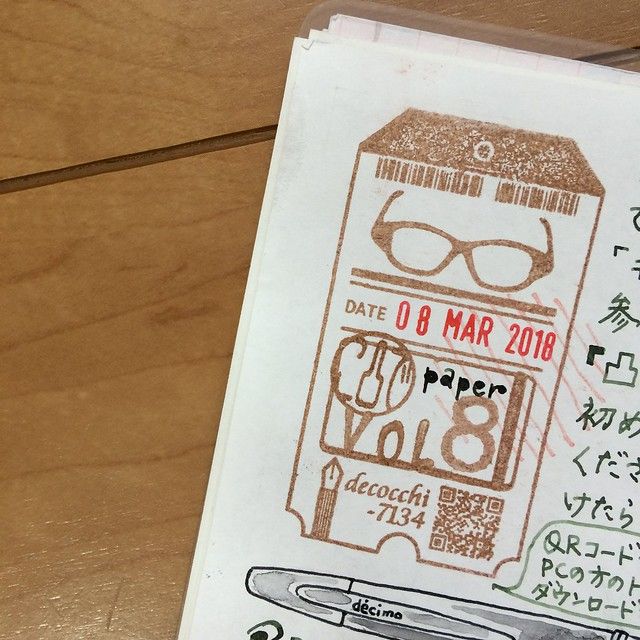 DATE 08 MAR 2018
paper
Vol 8
decocchi
-7134
「
参
「凸
初め
くださ
けたら
QRコード
PCの方の
ダウンロード
décimo